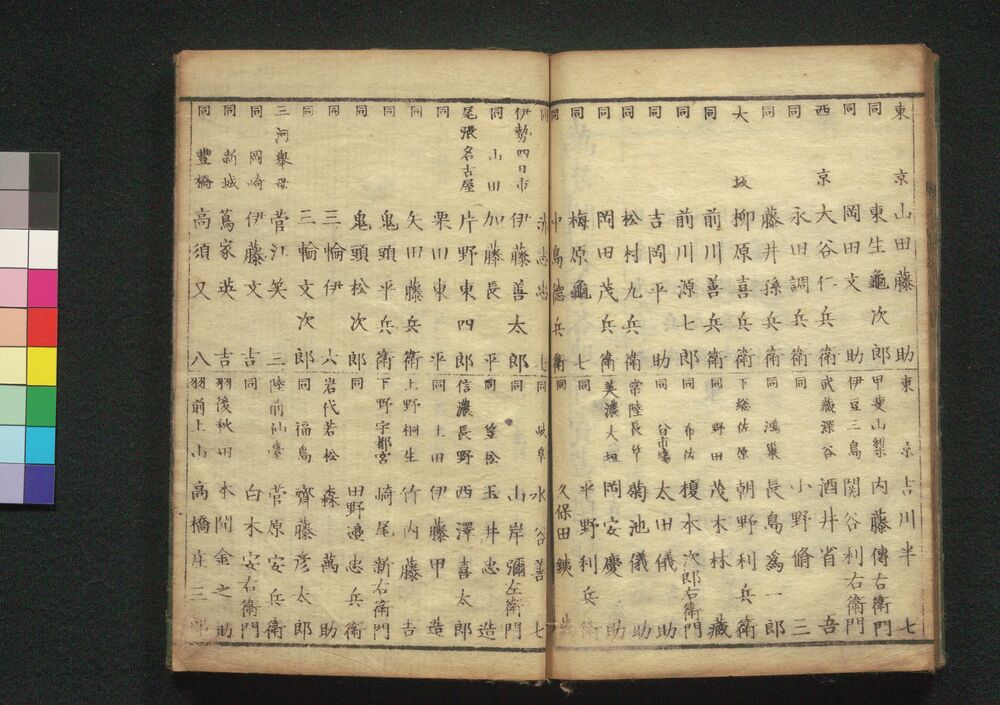 東京 山田藤助
同 東生龜次郎
同 岡田文助
西京 大谷仁兵衛
同 永田調兵衛
同 藤井孫兵衛
大坂 柳原喜兵衛
同 前川善兵衛
同 前川源七郎
同 吉岡平助
同 松村九兵衛
同 岡田茂兵衛
同 梅原龜七
同 中島德兵衛
東京 吉川半七
甲斐山梨 内藤傳右衛門
伊豆三島 関谷利右衛門
武蔵深谷 酒井省吾
同 小野脩三
同 鴻巣 長島爲一郎
下総佐原 朝野利兵衛
同 野田 茂木林藏
同 布佐 榎本次郎右衛門
同 台市場 太田儀助
常陸長竿 菊池儀助
美濃大垣 岡安慶助
同 平野利兵衛
同 久保田銕藏
同 赤志忠七
伊勢四日市 伊藤善太郎
同 山田 加藤長平
尾張名古屋 片野東四郎
同 栗田東平
同 矢田藤兵衛
同 鬼頭平兵衛
同 鬼頭松次郎
同 三輪伊六
同 三輪文次郎
三河擧母 菅江笑三
同 岡崎 伊藤文吉
同 新城 蔦家英吉
同 豐橋 高須又八
同 岐阜 水谷善七
同 山岸彌左衛門
同 笠松 玉井忠造
信濃長野 西澤喜太郎
同 上田 伊藤甲造
上野桐生 竹内藤吉
下野宇都宮 崎尾新右衛門
同 田野邉忠兵衛
岩代若松 森萬助
同 福島 齊藤彦太郎
陸前仙臺 菅原安兵衛
同 白木安右衛門
羽後秋田 本間金之助
羽前上山 高橋庄三郎